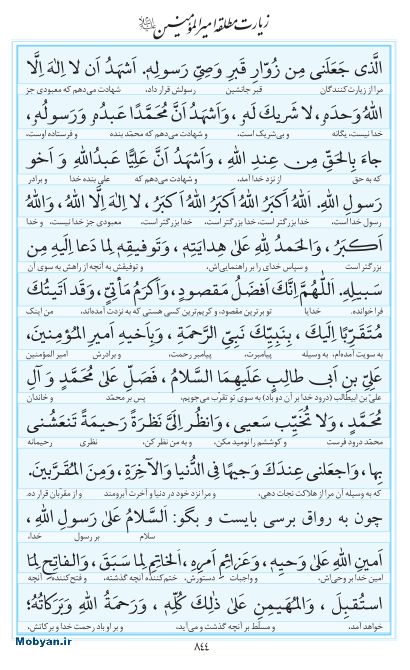 زیارت مطلقه امیرالمؤمنین
الَّذی جَعَلَنی مِن زُوّارِ قَبرِ وَصِیِّ رَسولِهِ. اَشهَدُ اَن لا اِلٰهَ اِلَّا
مرا از زیارت‌کنندگان قبر جانشین رسولش قرار داد، شهادت می‌دهم که معبودی جز
اللهُ وَحدَهُ، لا شَریكَ لَهُ، وَاَشهَدُ اَنَّ مُحَمَّدًا عَبدُهُ وَ رَسولُهُ،
خدا نیست، یگانه و بی‌شریک است، و شهادت می‌دهم که محمّد بنده و فرستاده اوست،
جاءَ بِالحَقِّ مِن عِندِ اللهِ، وَاَشهَدُ اَنَّ عَلِیًّا عَبدُاللهِ وَ اَخو
که به حق از نزد خدا آمد، و شهادت می‌دهم که علی بنده خدا و برادر
رَسولِ اللهِ. اَللهُ اَکبَرُ اللهُ اَکبَرُ اللهُ اَکبَرُ، لا اِلٰهَ اِلَّا اللهُ، وَاللهُ
رسول خداست، خدا بزرگتر است، خدا بزرگتر است، خدا بزرگتر است، معبودی جز خدا نیست، و خدا
اَکبَرُ، وَالحَمدُ لِلهِ عَلیٰ هِدایَتِهِ، وَتَوفیقِهِ لِما دَعا اِلَیهِ مِن
بزرگتر است و سپاس خدای را بر راهنمایی‌اش، و توفیقش به آنچه از راهش به سوی آن
سَبیلِهِ. اَللّٰهُمَّ اِنَّكَ اَفضَلُ مَقصودٍ، وَاَکرَمُ مَأتِیٍّ، وَقَد اَتَیتُكَ
فرا خوانده. خدایا تو برترین مقصود، و کریم‌ترین کسی هستی که به نزدت آمده‌اند، و من اینک
مُتَقَرِّبًا اِلَیكَ، بِنَبِیِّكَ نَبِیِّ الرَّحمَةِ، وَ بِاَخیهِ اَمیرِ المُؤمِنینَ،
به سویت آمده‌ام، به وسیله پیامبرت، پیامبر رحمت، و برادرش امیر المؤمنین
عَلِیِّ بنِ اَبی طالِبٍ عَلَیهِمَا السَّلامُ، فَصَلِّ عَلیٰ مُحَمَّدٍ وَ آلِ
علی بن ابیطالب (درود خدا بر آن دو باد) به سوی تو تقرب می‌جویم، پس بر محمّد و خاندان
مُحَمَّدٍ، وَلا تُخَیِّب سَعیی، وَانظُر اِلَیَّ نَظرَةً رَحیمَةً تَنعَشُنی
محمّد درود فرست و کوششم را نومید مکن، و به من نظر کن، نظری رحیمانه
بِها، وَاجعَلنی عِندَكَ وَجیهًا فِی الدُّنیا وَالآخِرَةِ، وَمِنَ المُقَرَّبینَ.
که به وسیله آن مرا از هلاکت نجات دهی، و مرا نزد خود در دنیا و آخرت آبرومند و از مقربان قرار ده.
چون به رواق برسی بایست و بگو: اَلسَّلامُ عَلیٰ رَسولِ اللهِ،
سلام بر رسول خدا،
اَمینِ اللهِ عَلیٰ وَحیِهِ، وَعَزائِمِ اَمرِهِ، اَلخاتِمِ لِما سَبَقَ، وَالفاتِحِ لِمَا
امین خدا بر وحی‌اش، و واجبات دستورش، ختم‌کننده آنچه گذشته، و فتح‌کننده آنچه
استُقبِلَ، وَالمُهَیمِنِ عَلیٰ ذٰلِكَ کُلِّهِ، وَ رَحمَةُ اللهِ وَ بَرَکاتُهُ؛
خواهد آمد، و مسلّط بر آنچه گذشت و می‌آید، و بر او باد رحمت خدا و برکاتش،
۸۴۴
Mobyan.ir